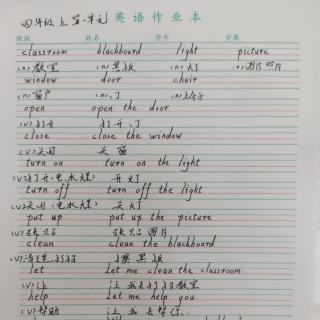 四年级上第一单元 英语作业本
班级 姓名 学号 分数
classroom blackboard light picture
(n)教室 (n)黑板 (n)灯 (n)图片,照片
window door chair
(n)窗户 (n)门 (n)椅子
open open the door
(v)打开 打开门
close close the window
(v)关闭 关窗
turn on turn on the light
(v)打开(电,水,煤) 开灯
turn off turn off the light
(v)关闭(电,水,煤) 关灯
put up put up the picture
(v)张贴 张贴图片
clean clean the blackboard
(v)清理,打扫 擦黑板
let Let me clean the classroom.
(v)让 让我去打扫教室
help Let me help you.
(v)帮助 让我去帮你.